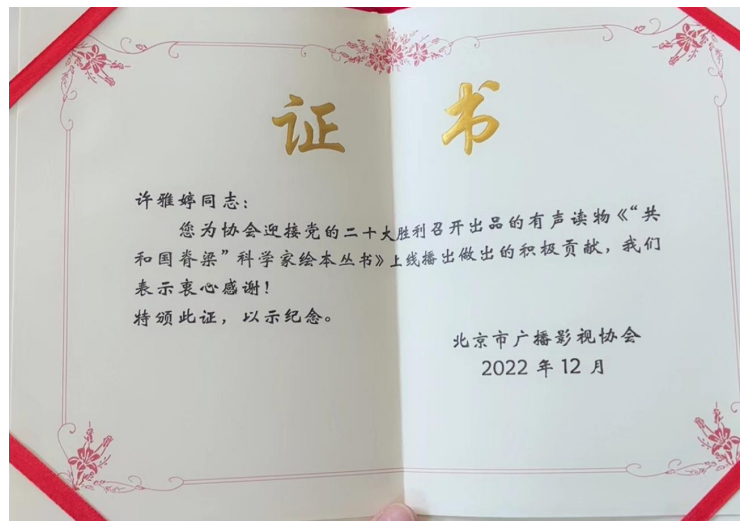 证书
许雅婷同志：
您为协会迎接党的二十大胜利召开出品的有声读物《“共
和国脊梁”科学家绘本丛书》上线播出做出的积极贡献，我们
表示衷心感谢！
特颁此证，以示纪念。
北京市广播影视协会
2022 年 12 月